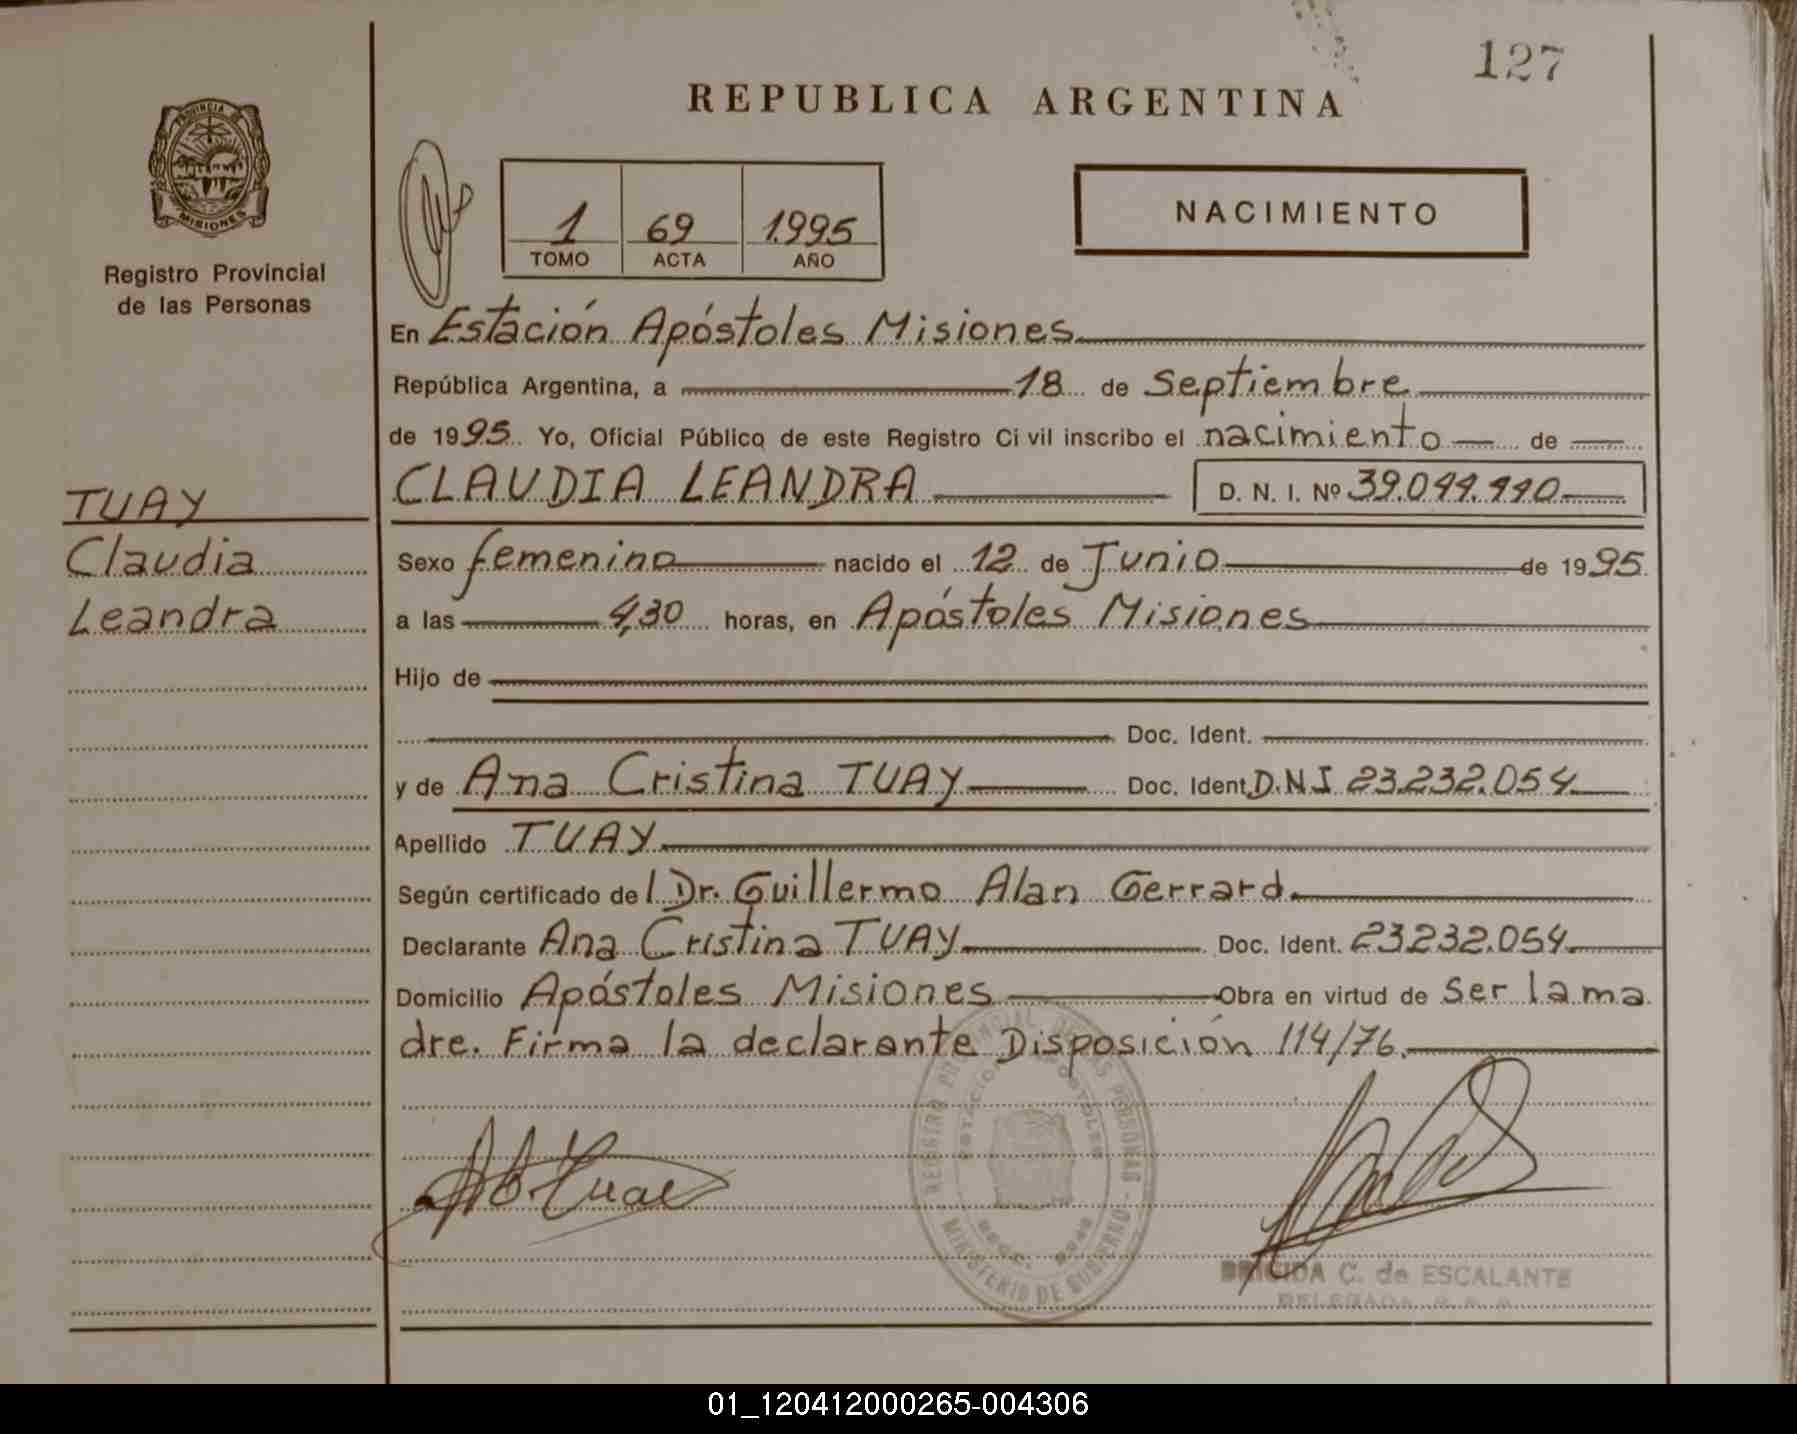 127
REPUBLICA ARGENTINA
PROVINCIA DE
MISIONES
Registro Provincial
de las Personas
1 69 1995
TOMO ACTA AÑO
NACIMIENTO
En Estación Apóstoles Misiones
República Argentina, a 18 de Septiembre
de 1995. Yo, Oficial Público de este Registro Civil inscribo el nacimiento de
CLAUDIA LEANDRA D. N. I. Nº
TUAY
Claudia
Leandra
Sexo femenino nacido el 12 de Junio de 1995
a las 4,30 horas, en Apóstoles Misiones
Hijo de
Doc. Ident.
y de Ana Cristina TUAY Doc. Ident. D.N.I 23.232.054
Apellido TUAY
Según certificado del Dr. Guillermo Alan Gerrard.
Declarante Ana Cristina TUAY Doc. Ident. 23232.054
Domicilio Apóstoles Misiones Obra en virtud de ser la ma
dre. Firma la declarante Disposición 114/76.
REGISTRO PROVINCIAL DE LAS PERSONAS - MINISTERIO DE GOBIERNO
ESTACION APOSTOLES
BRIGIDA C. de ESCALANTE
DELEGADA
01_120412000265-004306